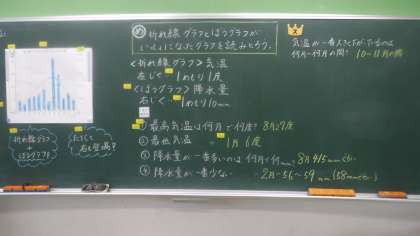 め 折れ線グラフとぼうグラフが
いっしょになったグラフを読みとろう。
<折れ線グラフ> 気温
左じく 1めもり1度
<ぼうグラフ> 降水量
右じく 1めもり10mm
① 最高気温は何月で何度? 8月27度
② 最低気温 〃 1月6度
③ 降水量が一番多いのは何月で何mm? 8月415mmぐらい
④ 降水量が一番少ない 2月-56~59mm (58mmぐらい)
気温が一番大きく下がっているのは
何月~何月の間? 10~11月の間
折れ線グラフ
+
ぼうグラフ